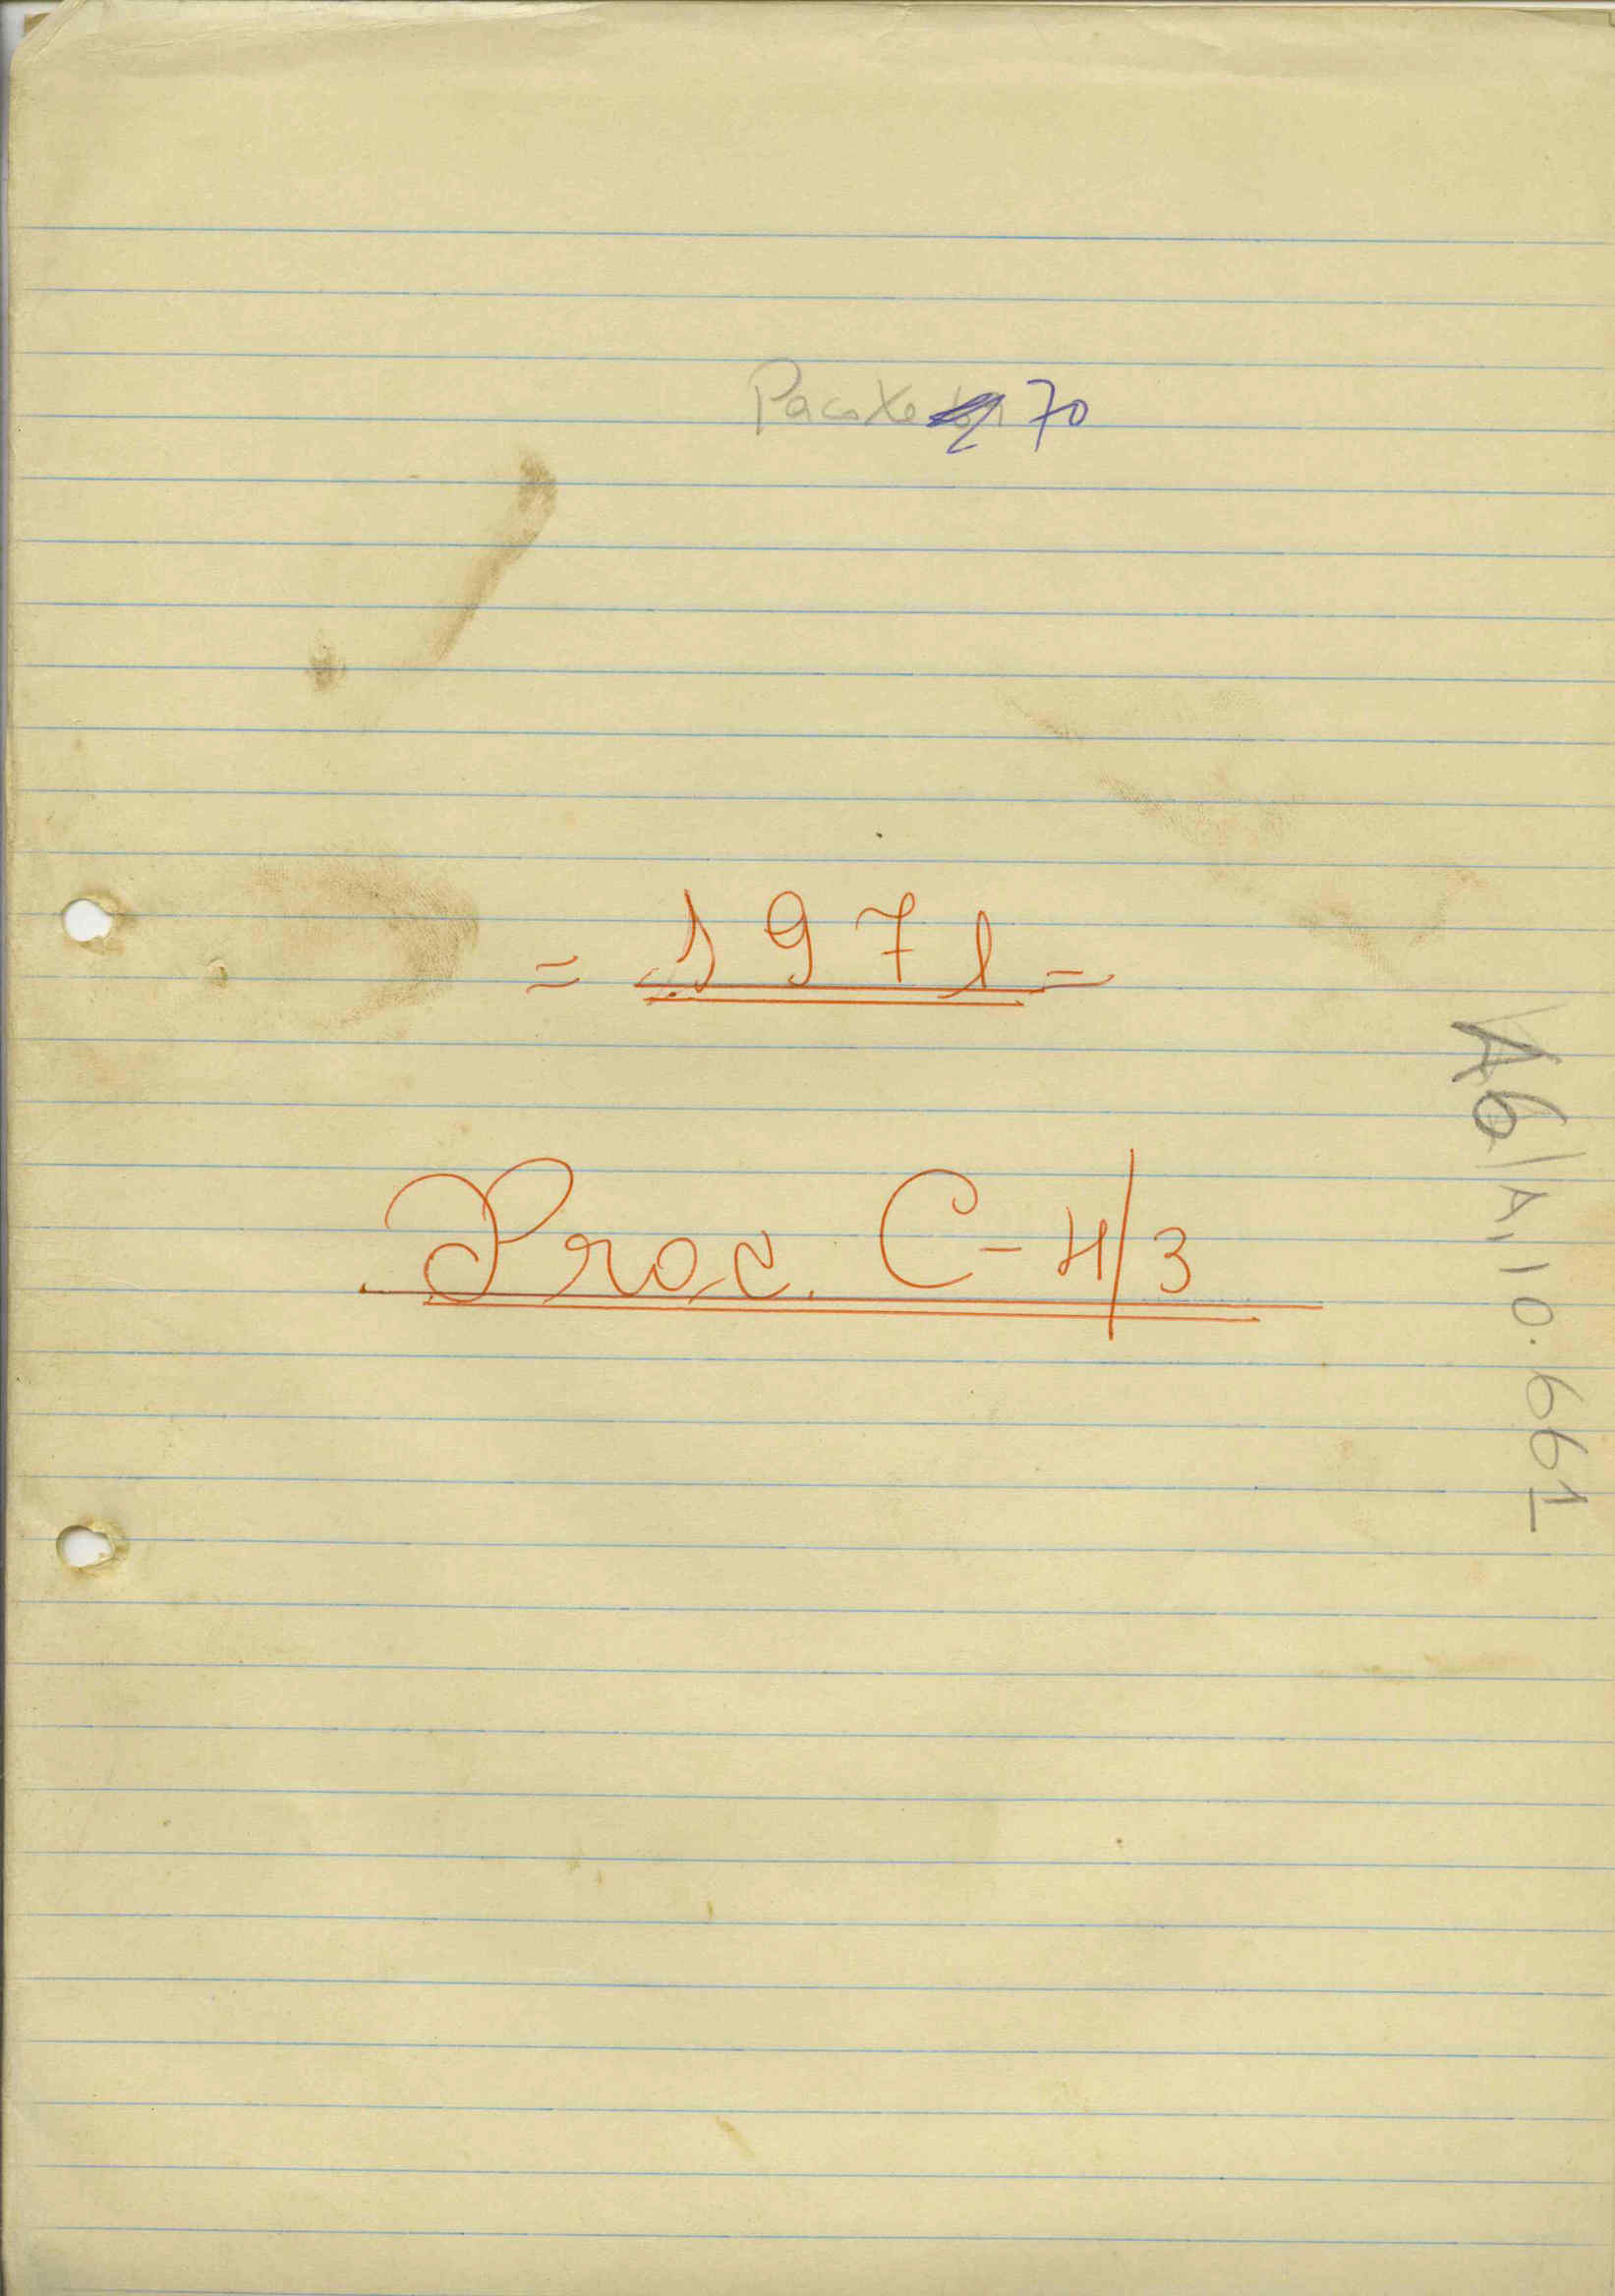 Pacote 70
= 1971 =
Proc. C-4/3
A6/A.10.661